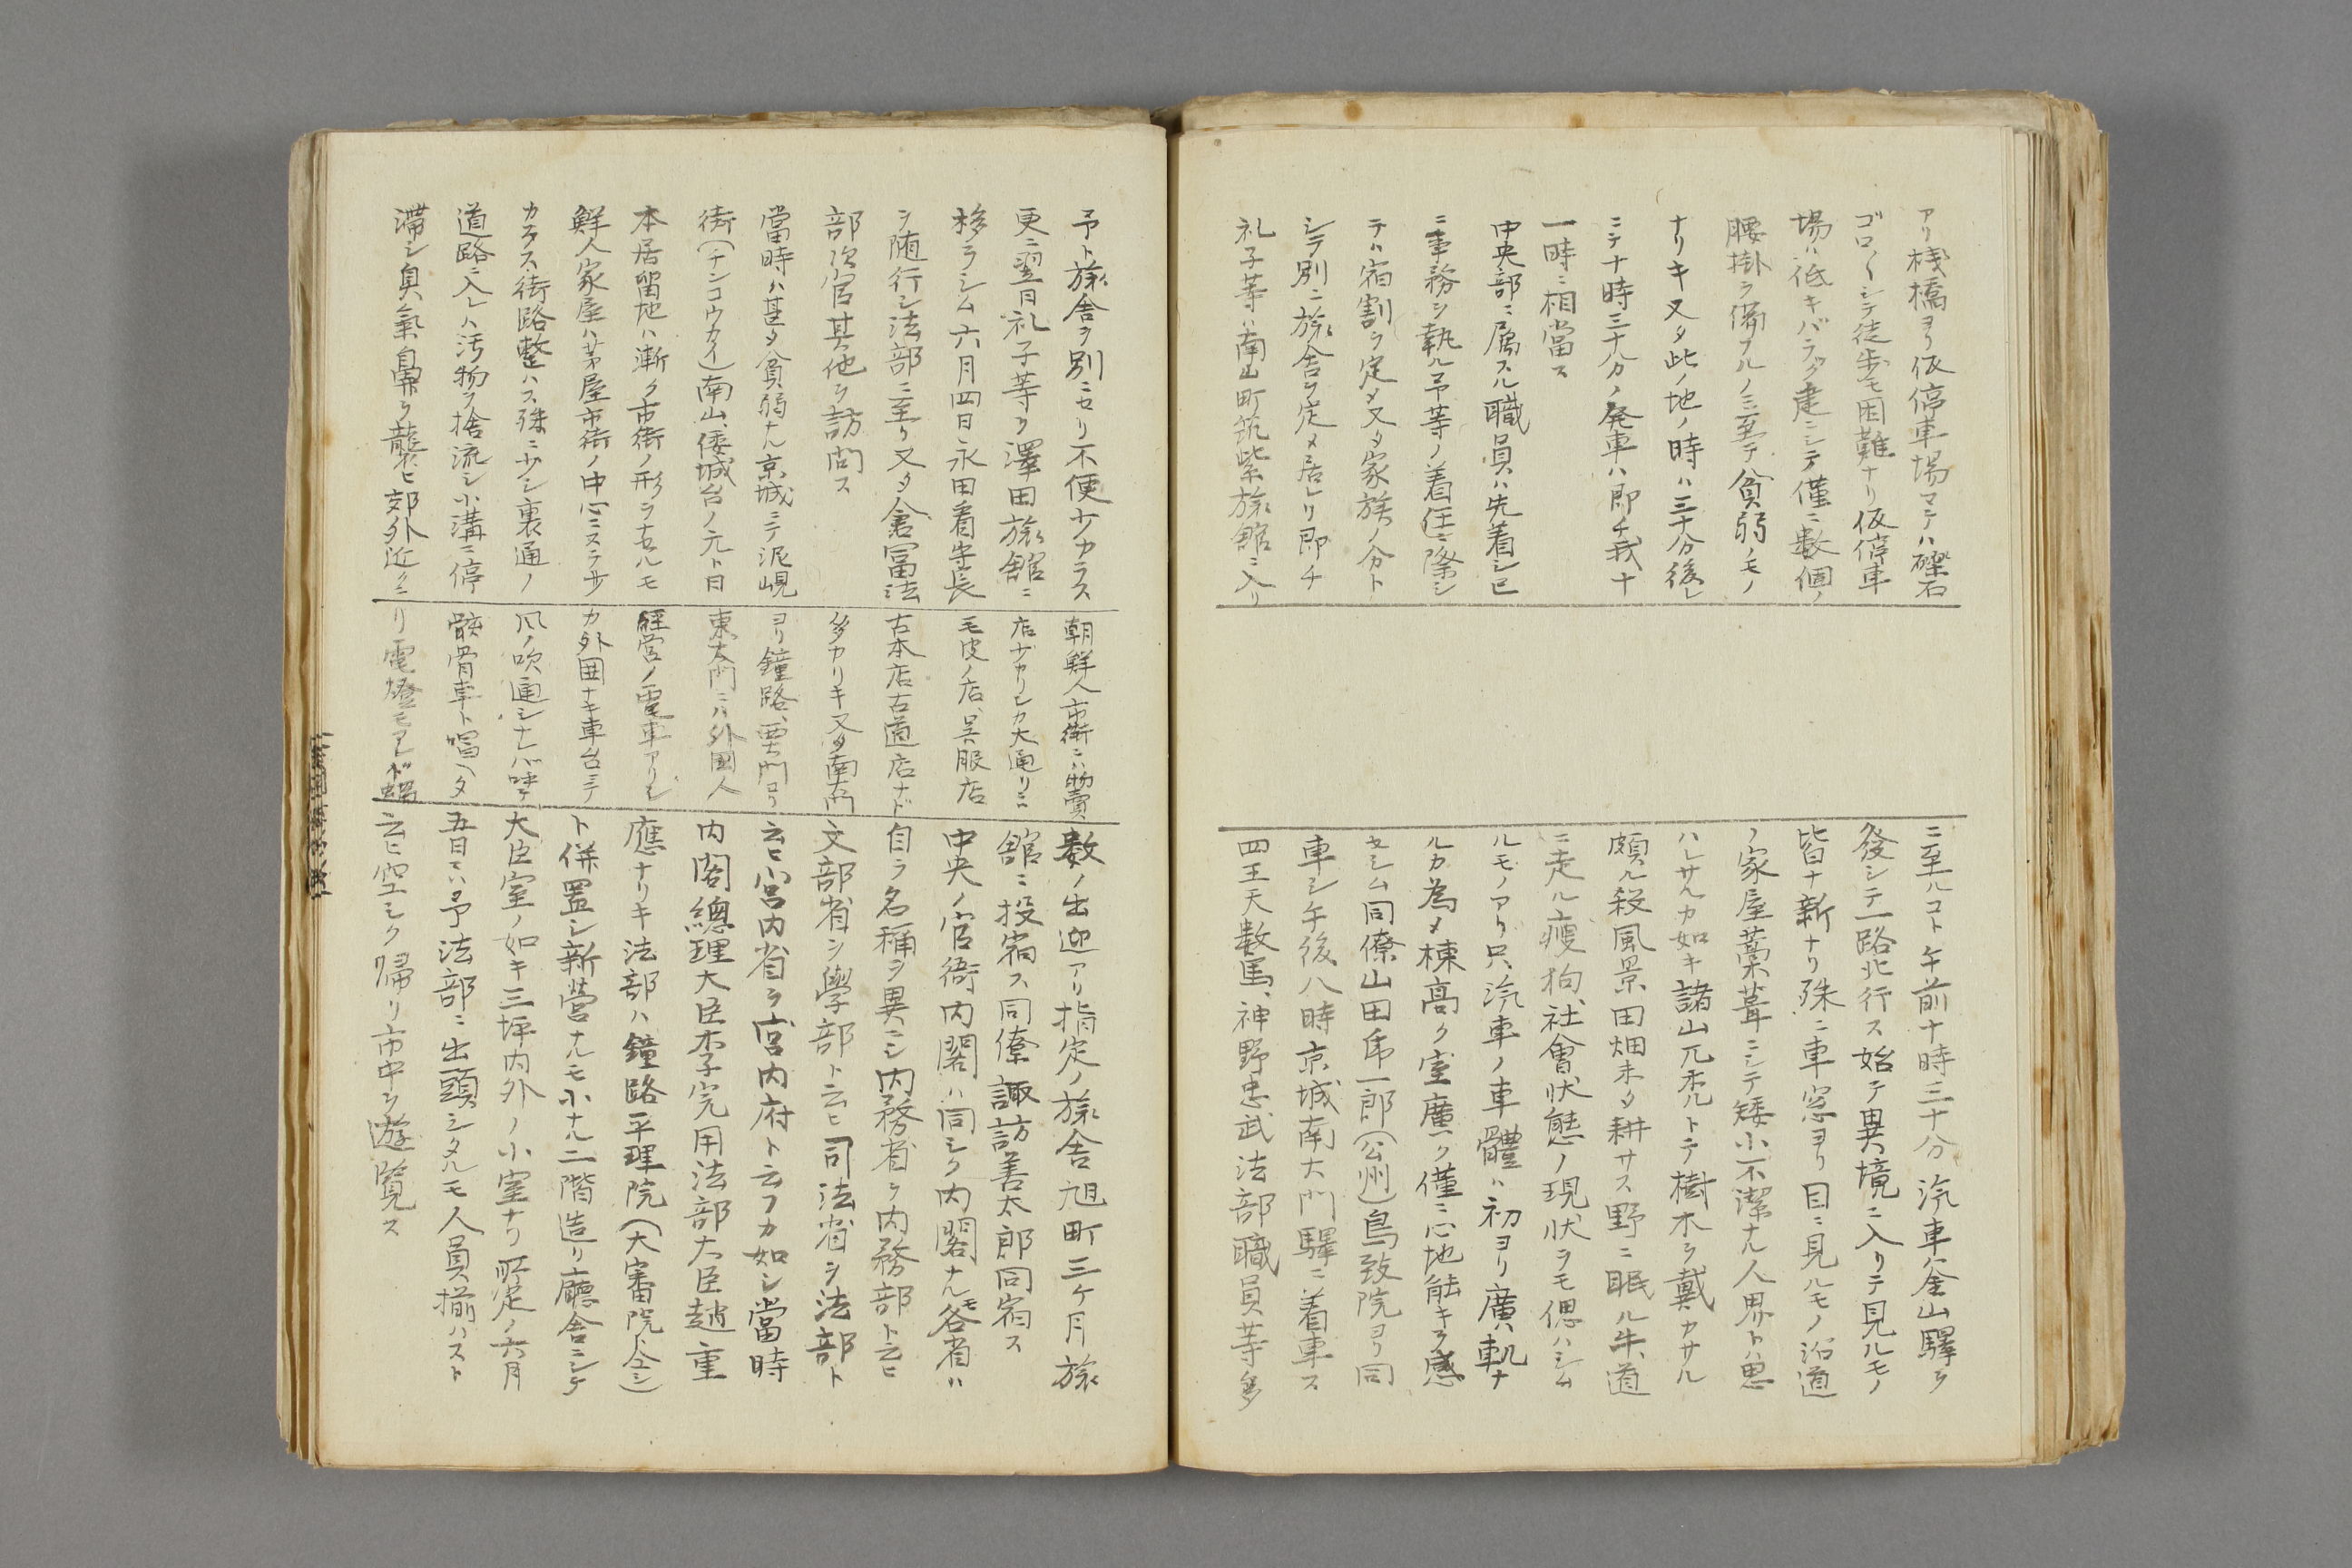 アリ棧橋ヨリ仮停車場マテハ礫石
ゴロ〱シテ徒歩モ困難ナリ仮停車
場ハ低キバラック建ニシテ僅ニ数個ノ
腰掛ヲ備フルノミ至テ貧弱ノモノ
ナリキ又タ此ノ地ノ時ハ三十分後レ
ニテ十時三十分ノ発車ハ即チ我十
一時ニ相當ス
中央部ニ属スル職員ハ先着シ已
ニ事務ヲ執ル予等ノ着任ニ際シ
テハ宿割ヲ定メ又タ家族ノ分ト
シテ別ニ旅舎ヲ定メ居レリ即チ
礼子等ハ南山町筑紫旅館ニ入リ
ニ至ルコト午前十時三十分汽車ハ釜山驛ヲ
發シテ一路北行ス始テ異境ニ入リテ見ルモノ
皆ナ新ナリ殊ニ車窓ヨリ目ニ見ルモノ沿道
ノ家屋藁葺ニシテ矮小不潔ナル人界トハ思
ハレサルカ如キ諸山兀禿ルトテ樹木ヲ戴カサル
頗ル殺風景田畑未タ耕サス野ニ眠ル牛道
ニ走ル瘦狗、社會状態ノ現状ヲモ偲ハシム
ルモノアリ只汽車ノ車體ハ初ヨリ廣軌ナ
ルカ為メ棟高ク室廣ク僅ニ心地能キヲ感
セシム同僚山田乕一郎(公州)鳥致院ヨリ同
車シ午後八時京城南大門驛ニ着車ス
四王天数馬、神野忠武法部職員等多
予ト旅舎ヲ別ニセリ不便少カラス
更ニ翌日礼子等ヲ澤田旅館ニ
移ラシム六月四日永田看守長
ヲ随行シ法部ニ至リ又タ倉富法
部次官其他ヲ訪問ス
當時ハ甚タ貧弱ナル京城ニテ泥峴
街(チンコウカイ)南山、倭城台ノ元ト日
本居留地ハ漸ク市街ノ形ヲ有ルモ
鮮人家屋ハ茅屋市街ノ中心ニスラ少
カラス街路整ハス殊ニ少シ裏通ノ
道路ニ入レハ汚物ヲ捨流シ小溝ニ停
滞シ臭氣鼻ヲ襲ヒ郊外近クニ
朝鮮人市街ニハ物賣
店少カリシカ大通リニハ
毛皮ノ店、呉服店
古本店古道店ナド
多カリキ又タ南大門
ヨリ鐘路、西大門ヨリ
東大門ニハ外國人
経営ノ電車アリシ
カ外囲ナキ車台ニテ
風ノ吹通シナレバ呼テ
骸骨車ト唱ヘタ
リ電燈モアレド
数ノ出迎アリ指定ノ旅舎旭町三ケ月旅
舘ニ投宿ス同僚諏訪善太郎同宿ス
中央ノ官衙内閣ハ同シク内閣ナルモ各省ハ
自ラ名稱ヲ異ニシ内務省ヲ内務部ト云ヒ
文部省ヲ學部ト云ヒ司法省ヲ法部ト
云ヒ宮内省ヲ宮内府ト云フカ如シ當時
内閣總理大臣李完用法部大臣趙重
應ナリキ法部ハ鐘路平理院(大審院ト仝シ)
ト併置シ新營ナルモ小ナル二階造リ廳舎ニシテ
大臣室ノ如キ三坪内外ノ小室ナリ所定ノ六月
五日ニハ予法部ニ出頭シタルモ人員揃ハスト
云ヒ空シク帰リ市中ヲ遊覧ス